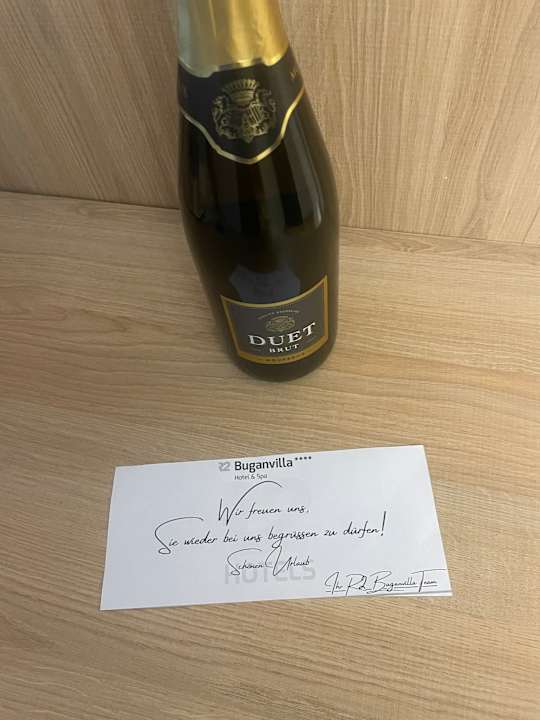 DUET
BRUT
R2 Buganvilla****
Hotel & Spa
Wir freuen uns,
Sie wieder bei uns begrüssen zu dürfen!
Schönen Urlaub
HOTELS
Ihr R2 Buganvilla Team